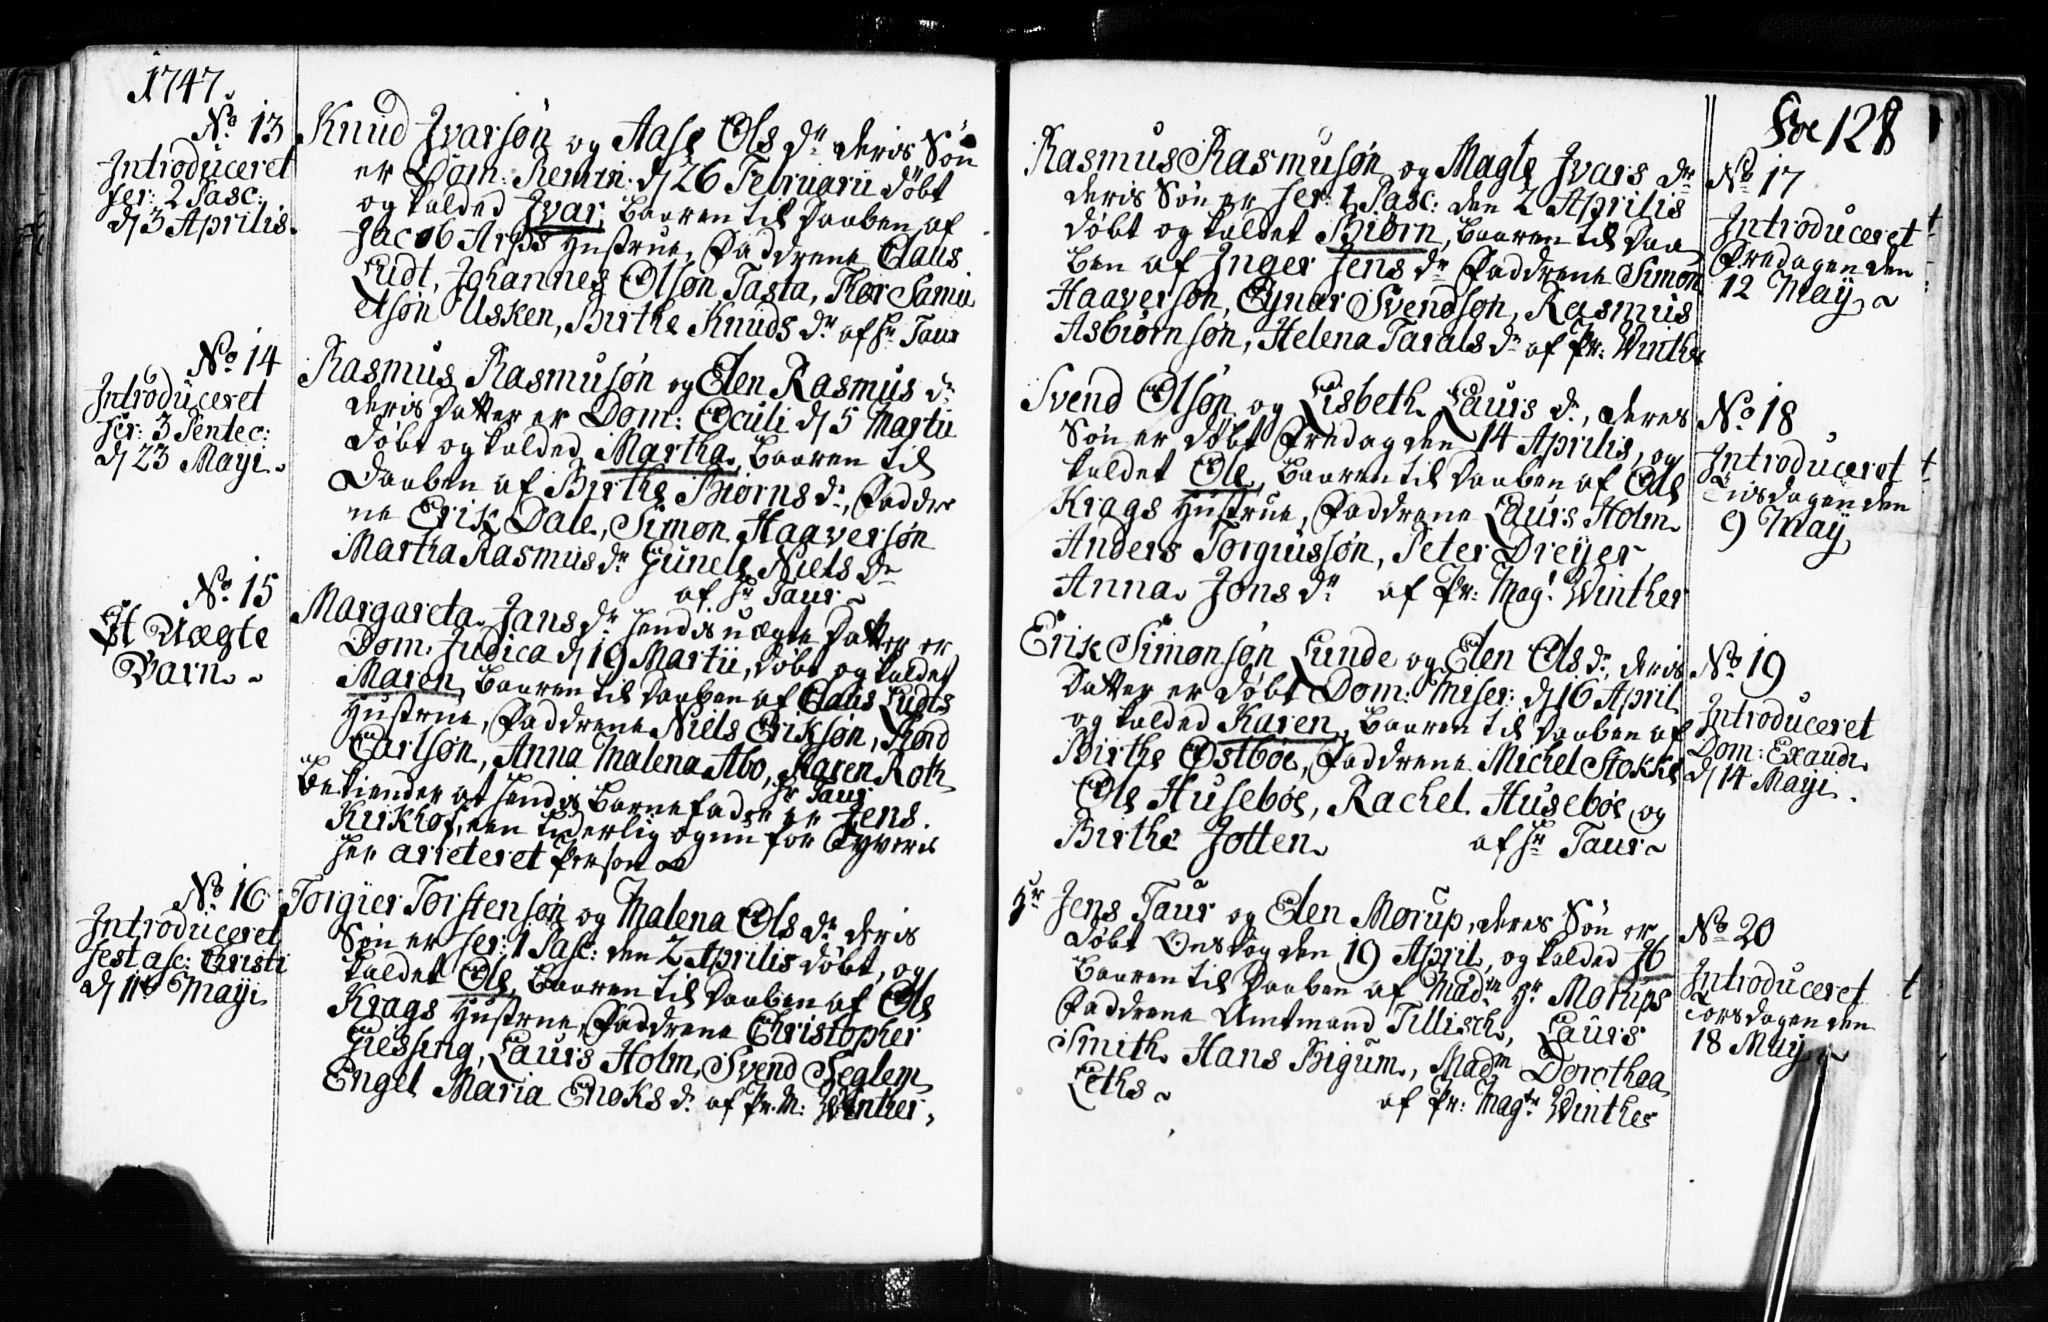 1747.
No. 13
Introduceret
fer: 2 Pasc:
d/ 3 Aprilis.
Knud Jvarsøn og Aase Ols dr. deris Søn
er Dom: Remin: d/ 26 Februarii døbt
og kalded Jvar, baaren til Daaben af
Jacob Arps Hustrue, Faddrene Claus
Ludt, Johannes Olsøn Tasta, Thor Samu
elsøn Usken, Birthe Knuds dr. af Hr Taur
No. 14
Introduceret
fer: 3 Pentec:
d/ 23 Mayi.
Rasmus Rasmusøn og Elen Rasmus dr.
deris Datter er Dom: Oculi d/ 5 Martii
døbt og kalded Martha, baaren til
Daaben af Birthe Biørns dr., Faddre
ne Erik Dale, Simon Haaversøn
Martha Rasmus dr Gunele Niels dr
af Hr Taur
No. 15
Et Uægte
Barn
Margareta Jans dr. hendis uægte Datter er
Dom: Judica d/ 19 Martii, døbt og kaldet
Maren, baaren til Daaben af Claus Ludts
Hustrue, Faddrene Niels Eriksøn, Thord
Carlsøn, Anna Malena Abo, Karen Roth
Hr Taur
bekiender at hendis Barnefader er Jens
Kirkhof, een liderlig og nu for Tyveri
her arieteret Person
No. 16
Introduceret
fest asc: Christi
d/ 11te Mayi
Torgier Torstensøn og Malena Ols dr deris
Søn er fer: 1 Pasc: den 2 Aprilis døbt, og
kaldet Ole, baaren til Daaben af Ole
Krags Hustrue, Faddrene Christopher
Giessing, Laurs Holm, Svend Seglem
Engel Maria Enoks dr. af Pr. M: Winther.
Foe 128
Rasmus Rasmusøn og Magle Jvars dr
deris Søn er fer: 1 Pasc: den 2 Aprilis
døbt og kaldet Biørn, baaren til Daa
ben af Inger Jens dr Faddrene Simon
Haaversøn, Eynar Svendsøn, Rasmus
Asbiørnsøn, Helena Tarals dr af Pr: Winther
No 17
Introduceret
Fredagen den
12 May
Svend Olsøn og Lisbeth Laurs dr., deres
Søn er døbt Fredag den 14 Aprilis, og
kaldet Ole, baaren til Daaben af Ole
Krags Hustrue, Faddrene Laurs Holm
Anders Torgiussøn, Peter Dreyer,
Anna Jons dr af Pr: Mag: Winther
No 18
Introduceret
Tirsdagen den
9 May
Erik Simonsøn Lunde og Elen Ols dr., deris
Datter er døbt Dom: Miser: d/ 16 April
og kalded Karen, baaren til Daaben af
Birthe Østbøe, Faddrene Michel Stokke
Ole Husebøe, Rachel Husebøe, og
Birthe Jotten af Hr Taur
No 19
Introduceret
Dom: Exaudi
d/ 14 Mayi.
Hr Jens Taur og Elen Morup, deres Søn er
døbt Onsdag den 19 April, og kalded Ib
baaren til Daaben af Madm Hr Morups
Faddrene Amtmand Tillisch, Laurs
Smith Hans Bigum, Madm Dorothea
Leths af Pr: Magr Winther
No 20
Introduceret
Torsdagen den
18 May